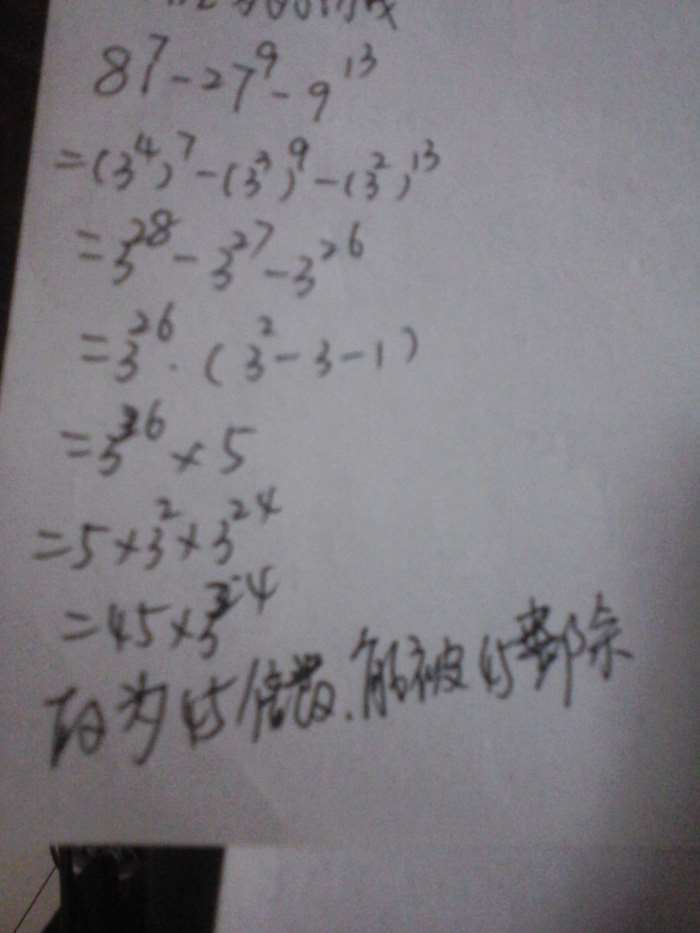 8⁷-27⁹-9¹³
=(3⁴)⁷-(3³)⁹-(3²)¹³
=3²⁸-3²⁷-3²⁶
=3²⁶·(3²-3-1)
=3²⁶×5
=5×3²×3²⁴
=45×3²⁴
为45倍数.能被45除